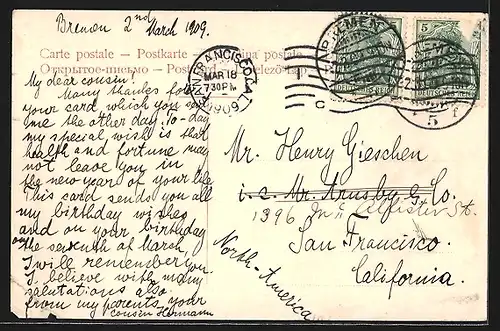 Bremen 2nd March 1909.
Carte postale — Postkarte —
Открытое письмо — Post
My dear cousin!
Many thanks for
your card, which you sent
me the other day. To-day
my special wish is that
health and fortune may
not leave you in
the new year of your life
This card sends you all
my birthday wishes
and on your birthday
on the seventh of March
I will remember you.
I believe with many
salutations also
from my parents your
cousin Hermann
FRANCISCO
MAR 18
7 30 PM
1909
BREMEN
5
DEUTSCHES REICH
BREMEN
5
Mr. Henry Gieschen
i. c. Mr. & Co.
1396 Mc Allister St.
San Francisco
California.
North-America